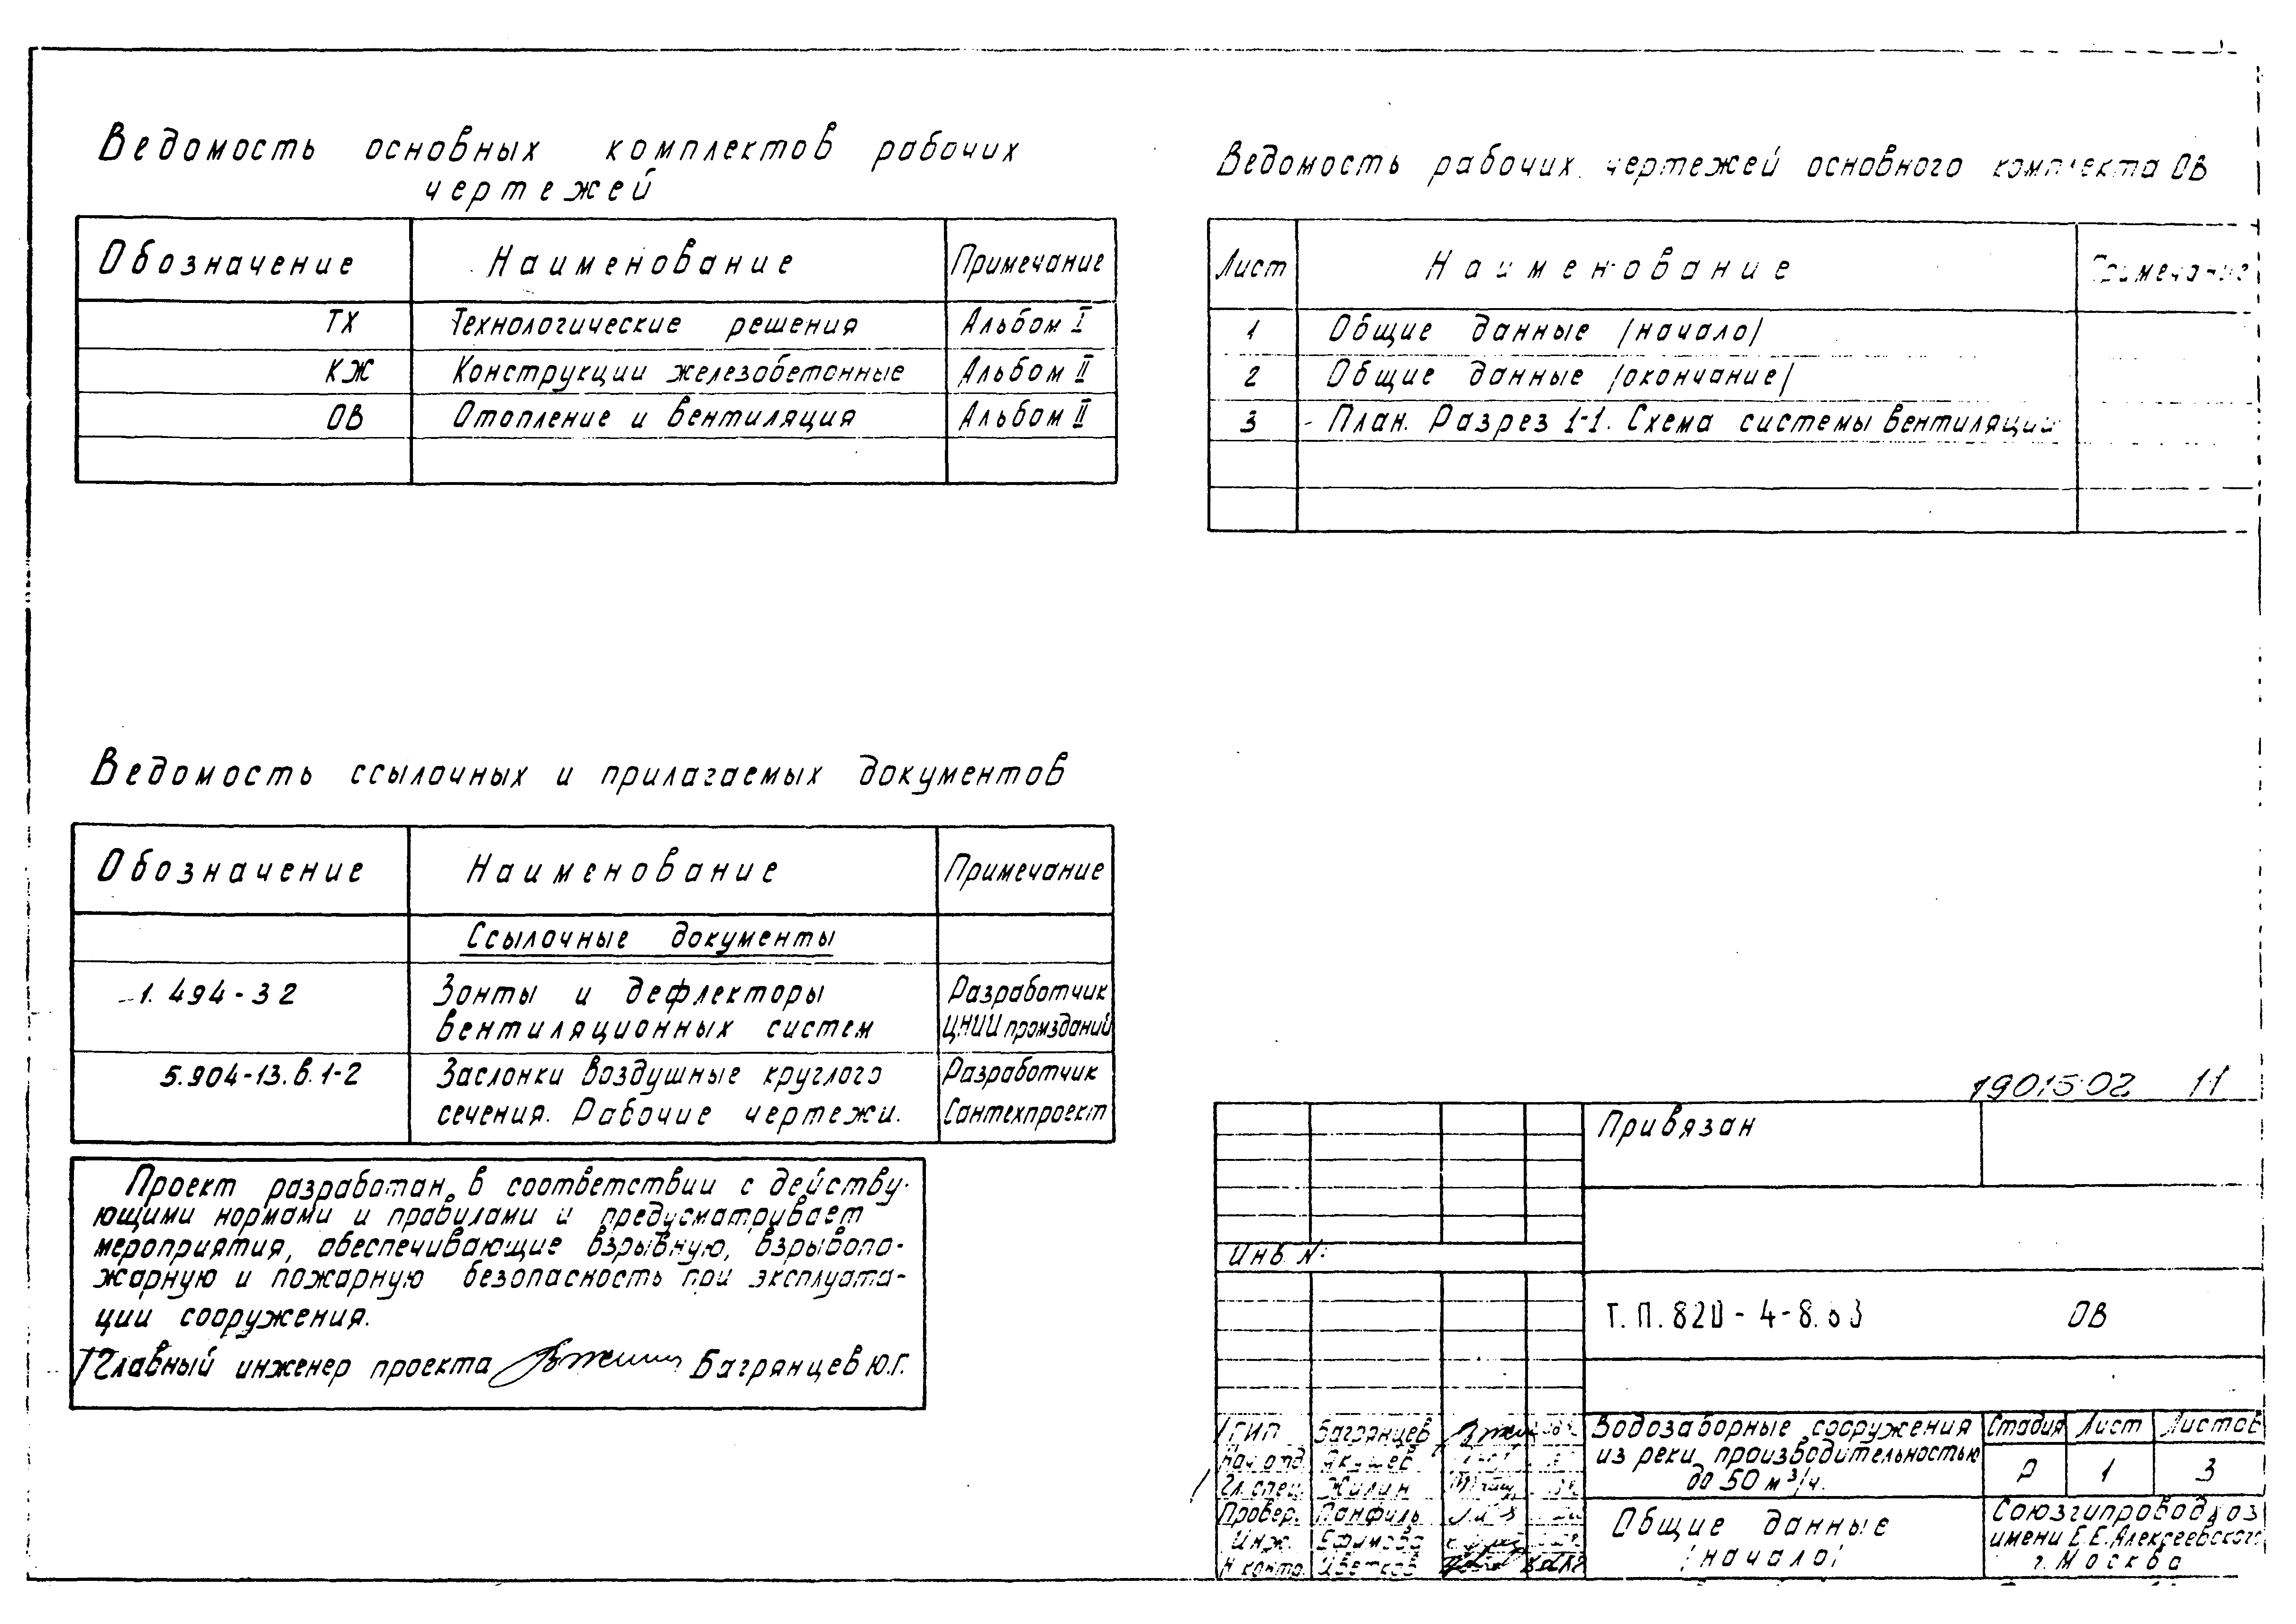 Ведомость основных комплектов рабочих
чертежей
Обозначение Наименование Примечание
ТХ Технологические решения Альбом I
КЖ Конструкции железобетонные Альбом II
ОВ Отопление и вентиляция Альбом II
Ведомость рабочих чертежей основного комплекта ОВ
Лист Наименование Примечание
1 Общие данные /начало/
2 Общие данные /окончание/
3 План. Разрез 1-1. Схема системы вентиляции
Ведомость ссылочных и прилагаемых документов
Обозначение Наименование Примечание
Ссылочные документы
1.494-32 Зонты и дефлекторы Разработчик
вентиляционных систем ЦНИИпромзданий
5.904-13.в.1-2 Заслонки воздушные круглого Разработчик
сечения. Рабочие чертежи. Сантехпроект
Проект разработан в соответствии с действу-
ющими нормами и правилами и предусматривает
мероприятия, обеспечивающие взрывную, взрывопо-
жарную и пожарную безопасность при эксплуата-
ции сооружения.
Главный инженер проекта Багрянцев Ю.Г.
19015-02 11
Привязан
Инв №:
Т.П. 820-4-8.83 ОВ
ГИП Багрянцев
Нач.отд. Якушев
Гл.спец. Жилин
Провер. Панфиль
Инж. Ефимова
Н.контр. Цветков
Водозаборные сооружения
из реки производительностью
до 50 м³/ч.
Стадия Лист Листов
Р 1 3
Общие данные
/начало/
Союзгипроводхоз
имени Е.Е.Алексеевского
г. Москва